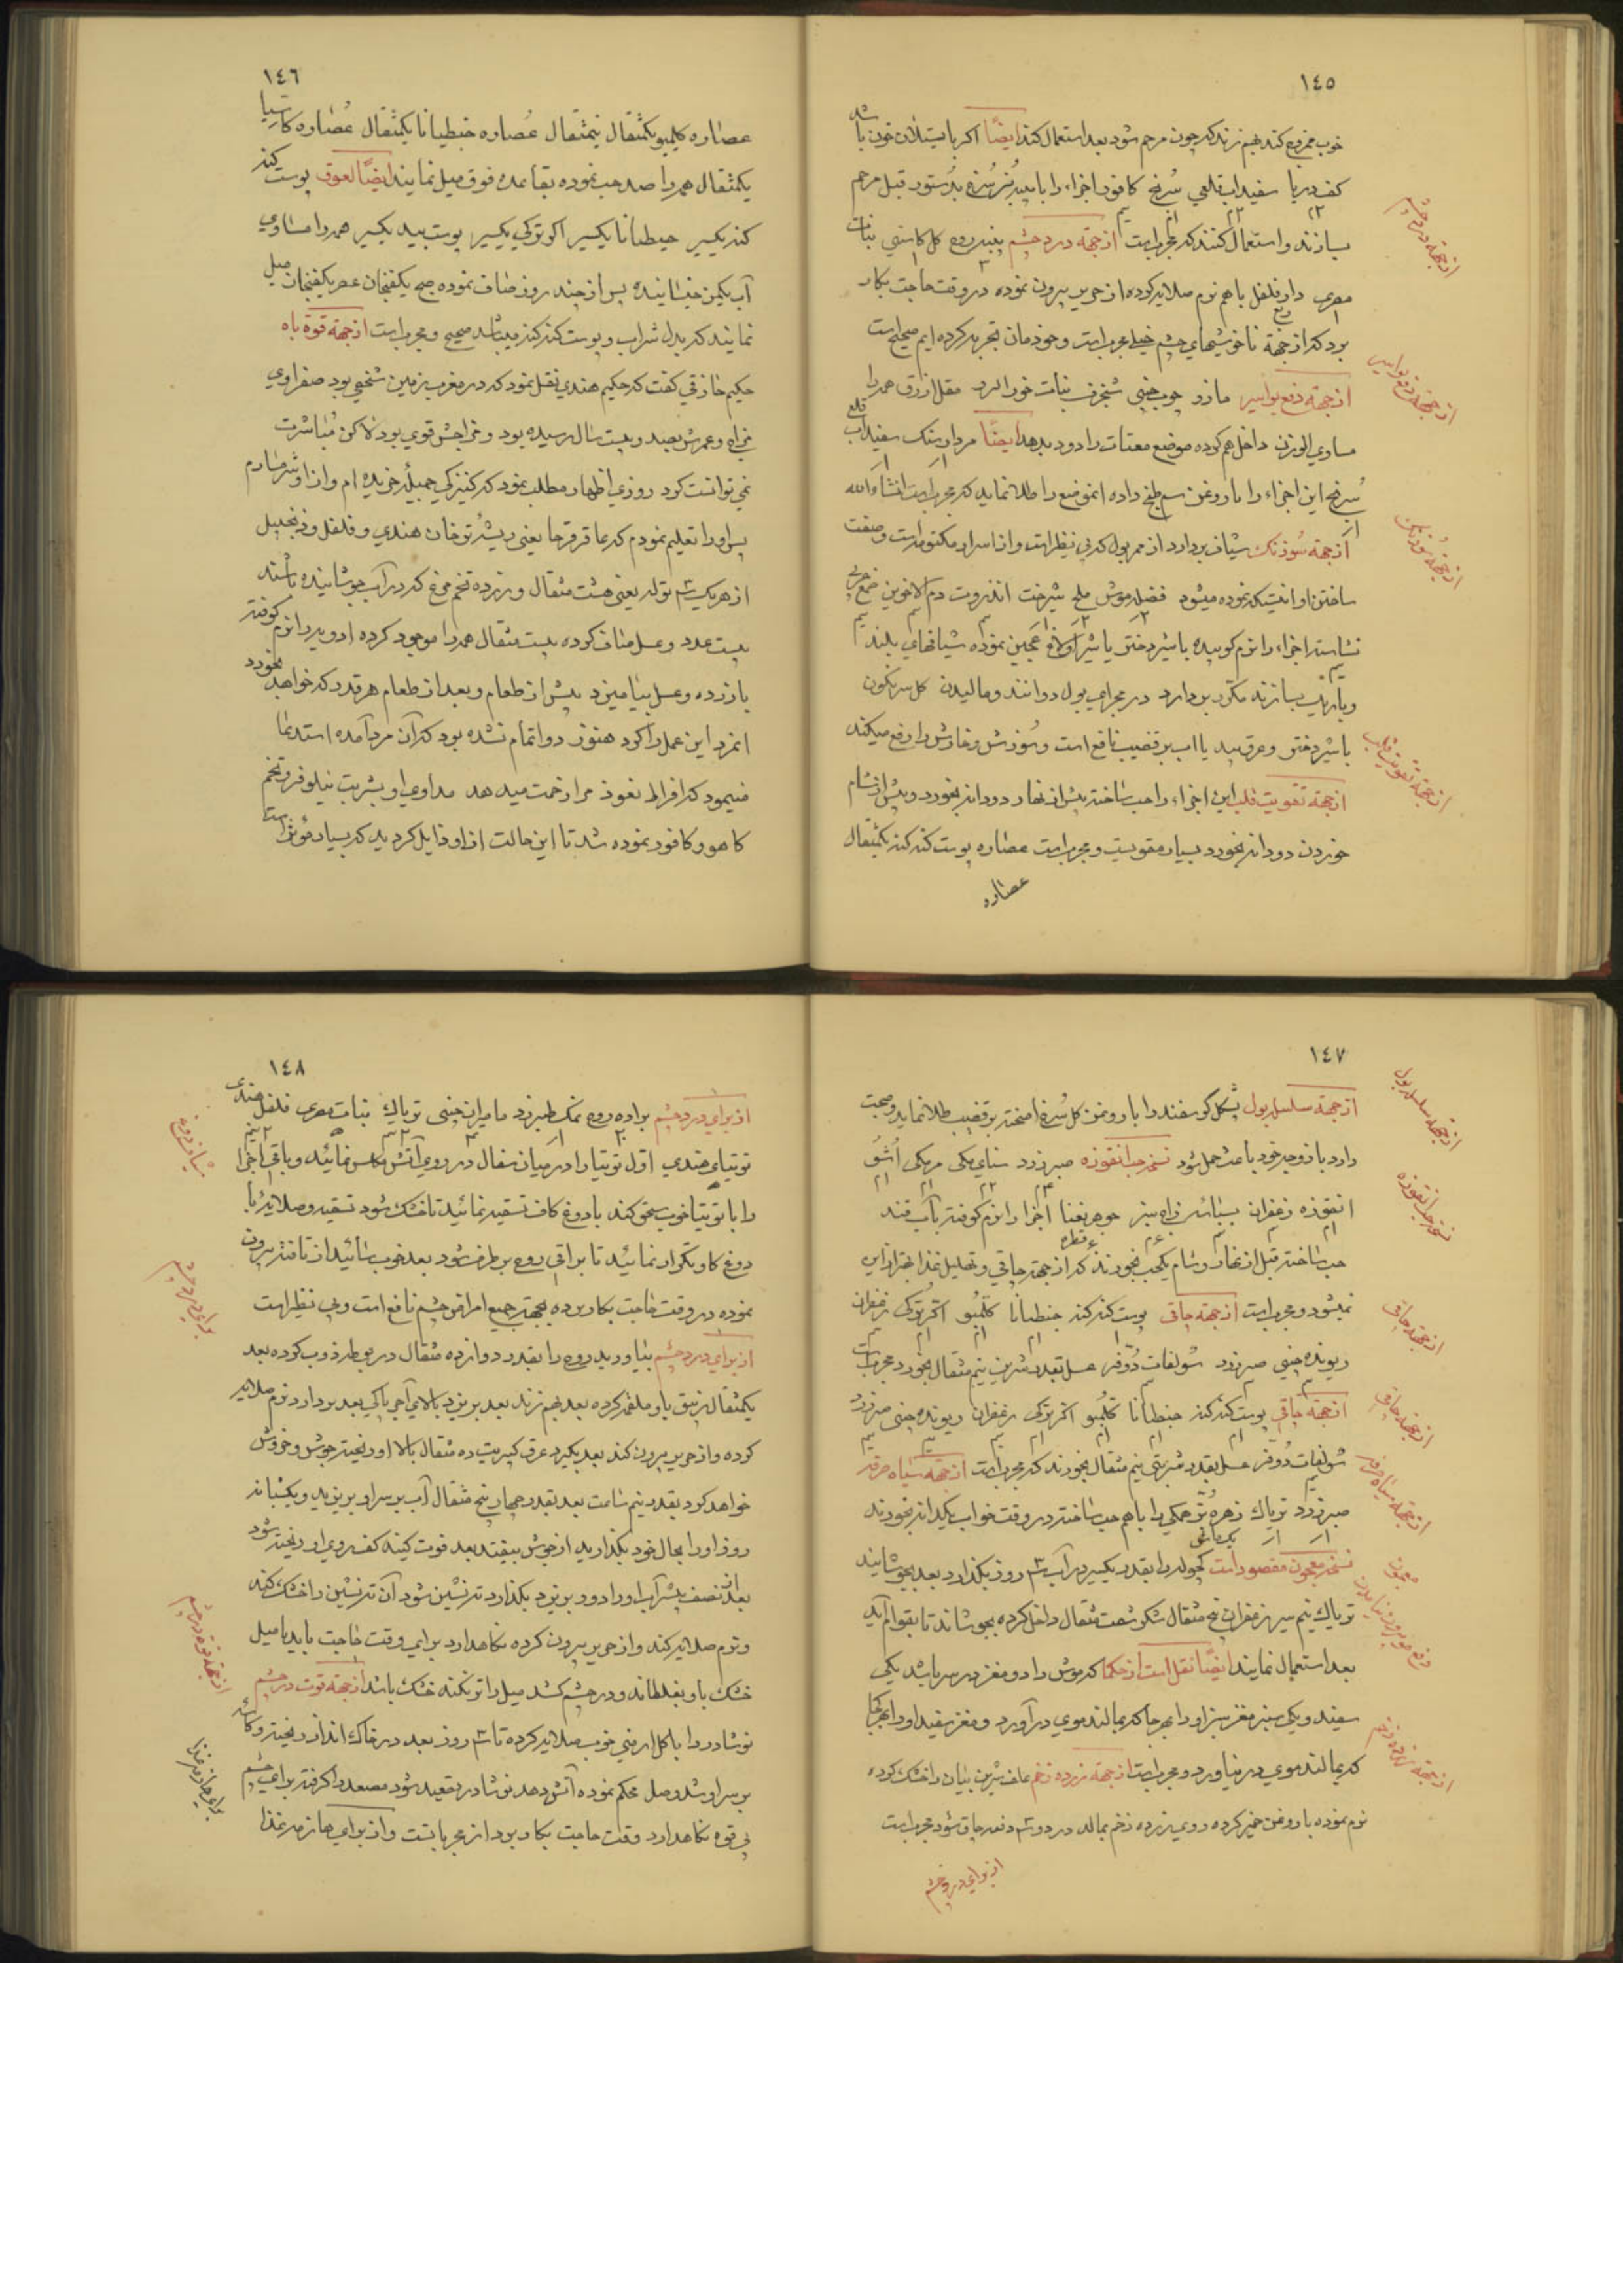 ١٤٥
خوب ممزوج کند بهم زند که چون مرهم شود بعد استعمال کند ایضًا اکر با سیلان خون باشد
کف دریا سفیداب قلعی سُرنج کافور اجزاء را با پیه بُز سُرخ بدستور قبل مرهم
بسازند و استعمال کنند که مجربست ازجهة درد چشم پنبه روه کل کاسنی نبات
مصری دارفلفل باهم نرم صلایه کرده از حریر بیرون نموده در وقت حاجت بکار
برد که ازجهة ناخوشیهای چشم خیلی مجربست و خودمان تجربه کرده ایم صحیح است
ازجهة دفع بواسیر مازو چوب چینی شنجرف نبات مقل ازرق همه را
مساوی الوزن داخل هم کرده موضع معتاد را دود بدهد ایضًا مردارسنک سفیداب قلع
سُرنج این اجزاء را با روغن طبخ داده انموضع را طلا نماید که مجربست انشاءالله
ازجهة سُوزنک شیاف بردارد از ممر بول که بی نظیراست و از اسرار مکتومه است وصفت
ساختن او اینست که نموده میشود فضله موش ملح شیرخشت انذروت دم الاخوین صمغ عربی
نشاسته اجزاء را نرم کوبیده با شیر دختر یا شیر اولاغ عجین نموده شیافهای بلند
و باریک بسازند مکرر بردارد در مجرای بول دوانند و مالیدن کل سرنکون
با شیر دختر و عرق بید یا اب بر قضیب نافع است و سُوزش و خارش را رفع میکند
ازجهة تقویت قلب این اجزاء را حب ساخته پیش از نهار دو دانه بخورد و پیش از شام
خوردن دو دانه بخورد بسیار مقویست و مجربست عصاره پوست کندکنه یکمثقال
عصاره
ازجهة درد چشم
ازجهة دفع بواسیر
ازجهة سُوزنک
ازجهة تقویت قلب
١٤٦
عصاره کلمبو یکمثقال نیمثقال عُصاره جنطیانا یکمثقال عُصاره کاسیا
یکمثقال همه را صد حب نموده بقاعده فوق میل نمایند ایضًا لعوق پوست کند
کنه یکسیر جنطیانا یکسیر اکر ترکی یکسیر پوست بید یکسیر همه را مساوی
آب یکمن خیسانیده پس از چند روز صاف نموده صبح یکفنجان عصر یکفنجان میل
نمایند که بدل شراب و پوست کندکنه میباشد صحیح و مجربست ازجهة قوة باه
حکیم حاذقی کفت که حکیم هندی نقل نمود که در مغرب زمین شخصی بود صفراوی
مزاج و عمرش بصد و بیست سال رسیده بود و مزاجش قوی بود لاکن مُباشرت
نمی توانست کرد روزی اظهار مطلب نمود که کنیزکی جمیله خریده ام و از او شرمسارم
پس او را تعلیم نمودم که عاقرقرحا یعنی ریشه ترخان هندی و فلفل و زنجبیل
از هر یک سه توله یعنی هشت مثقال و زرده تخم مرغ که در آب جوشانیده باشند
بیست عدد و عسل صاف کرده بیست مثقال همه را موجود کرده ادویه را نرم کوفته
با زرده و عسل بیامیزد پیش از طعام و بعد از طعام هر قدر که خواهد بخورد
انمرد این عمل را کرد هنوز دوا تمام نشده بود که آن مرد آمده استدعا
مینمود که افراط نعوذ مرا زحمت میدهد مداوای او بشربت نیلوفر و تخم
کاهو و کافور نموده شد تا این حالت از او زایل کردید که بسیار مُوثر است
١٤٧
ازجهة سلسل بول پشکل کوسفند را با روغن کل سُرخ امیخته بر قضیب طلا نماید و صحبت
دارد با زوجه خود باعث حمل شود نسخه حب انقوزه صبرزرد سنای مکی مرمکی اُشُق
انقوزه زعفران جوهر نعنا اجزا را نرم کوفته با آب قند
حب ساخته قبل از نهار و شام یکحب بخورند که ازجهة چاقی و تحلیل غذا بهتر از این
نمیشود و مجربست ازجهة چاقی پوست کندکنه جنطیانا کلمبُو اکر ترکی زعفران
ریونده چینی صبرزرد سُولفات دُوفر عسل بقدر شربت نیم مثقال بخورد مجربست
ازجهة چاقی پوست کندکنه جنطیانا کلُمبُو اکر ترکی زعفران ریونده چینی صبرزرد
سُولفات دُوفر عسل بقدر شربتی نیم مثقال بخورند که مجربست ازجهة سیاه سرفه
صبرزرد تریاک زهره را باهم حب ساخته در وقت خواب یکدانه بخورند
نسخه معجون مقصود است کچوله را بقدر یکسیر در آب ۳ روز بکذارد بعد بجوشانید
تریاک نیم سیر زعفران پنج مثقال شکر شصت مثقال داخل کرده بجوشاند تا بقوام آید
بعد استعمال نمایند ایضًا نقل است از حکما که موش را دو مغز در سر باشد یکی
سفید و یکی سبز مغز سبز او را بهر جا که بمالند موی درآورد و مغز سفید او را بهرجا
که بمالند موی در نیاورد و مجربست ازجهة زرده زخم علف شیرین بیان را خشک کرده
نرم نموده با روغن خمیر کرده روی زرده زخم بمالد در دو سه دفعه چاق شود مجربست
از برای درد چشم
ازجهة سلسل بول
نسخه حب انقوزه
ازجهة چاقی
ازجهة چاقی
ازجهة سیاه سرفه
معجون
ازجهة زرده زخم
١٤٨
از برای درد چشم براده روه نمک طبرزد مامیران چینی تریاک نبات مصری فلفل هندی
توتیای هندی اوّل توتیا را در میان سفال در روی آتش مکلس نمائید و باقی اجزا
را با توتیا خوب سحق کند با دوغ کاو تسقیه نمائید تا خشک شود تسقیه و صلایه را با
دوغ کاو تکرار نمائید تا براقی روه برطرف شود بعد خوب سائید از تافته بیرون
نموده در وقت حاجت بکار برده بجهة جمیع امراض چشم نافع است و بی نظیر است
از برای درد چشم بیاورید روه را بقدر دوازده مثقال در بوطه ذوب کرده بعد
یکمثقال زیبق با و ملغمه کرده بعد بهم زند بعد بریزد بالای آجر پاکی بعد بردارد نرم صلایه
کرده و از حریر بیرون کند بعد بکیرد عرق کبریت ده مثقال بالا او ریخته جوش و خروش
خواهد کرد بقدر نیم ساعت بعد بقدر چهار پنج مثقال آب بر سر او بریزید و یکشبانه
روز او را بحال خود بکذارید از جوش بیفتد بعد فوت کنید کف روی او ریخته شود
بعد از نصف بیشتر آب او را دور بریزد بکذارد ته نشین شود آن ته نشین را خشک کند
و نرم صلایه کند و از حریر بیرون کرده نکاهدارد برای وقت حاجت باید با میل
خشک باو بغلطاند و در چشم کشد میل را تر نکند خشک باشد ازجهة قوت درد چشم
نوشادر را با کل ارمنی خوب صلایه کرده تا ۳ روز بعد در خاک انداز ریخته و کاسهٔ
بر سر او شد وصل محکم نموده آتش دهد نوشادر تصعید شود مصعد را کرفته برای چشم
بی قوه نکاهدارد وقت حاجت بکار برد از مجرباتست و از برای هاضمه غذا
برای درد چشم
برای هاضمه غذا